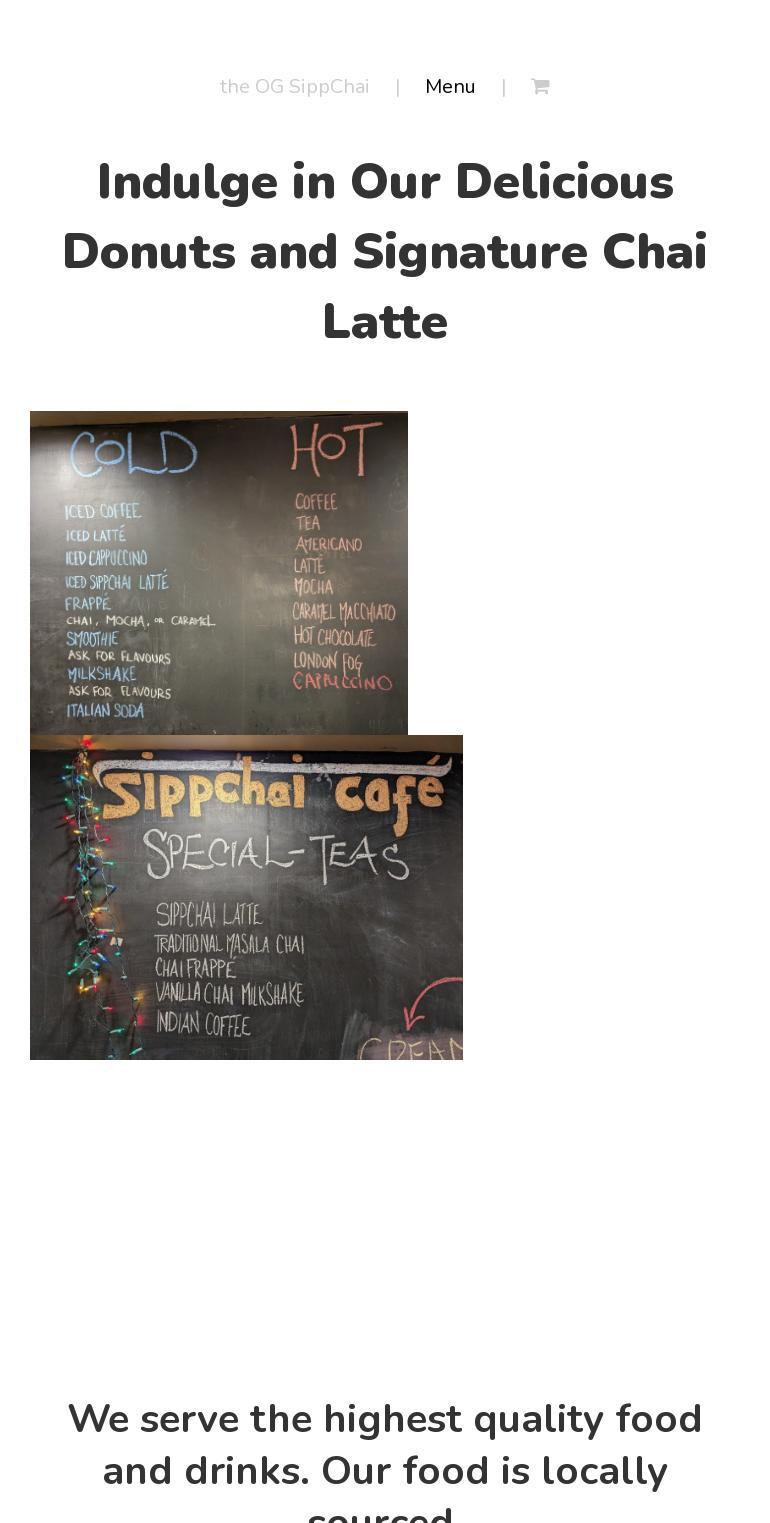 the OG SippChai | Menu |
Indulge in Our Delicious
Donuts and Signature Chai
Latte
COLD
ICED COFFEE
ICED LATTÉ
ICED CAPPUCCINO
ICED SIPPCHAI LATTÉ
FRAPPÉ
CHAI, MOCHA, OR CARAMEL
SMOOTHIE
ASK FOR FLAVOURS
MILKSHAKE
ASK FOR FLAVOURS
ITALIAN SODA
HOT
COFFEE
TEA
AMERICANO
LATTÉ
MOCHA
CARAMEL MACCHIATO
HOT CHOCOLATE
LONDON FOG
CAPPUCCINO
Sippchai café
SPECIAL-TEAS
SIPPCHAI LATTE
TRADITIONAL MASALA CHAI
CHAI FRAPPÉ
VANILLA CHAI MILKSHAKE
INDIAN COFFEE
We serve the highest quality food
and drinks. Our food is locally
sourced